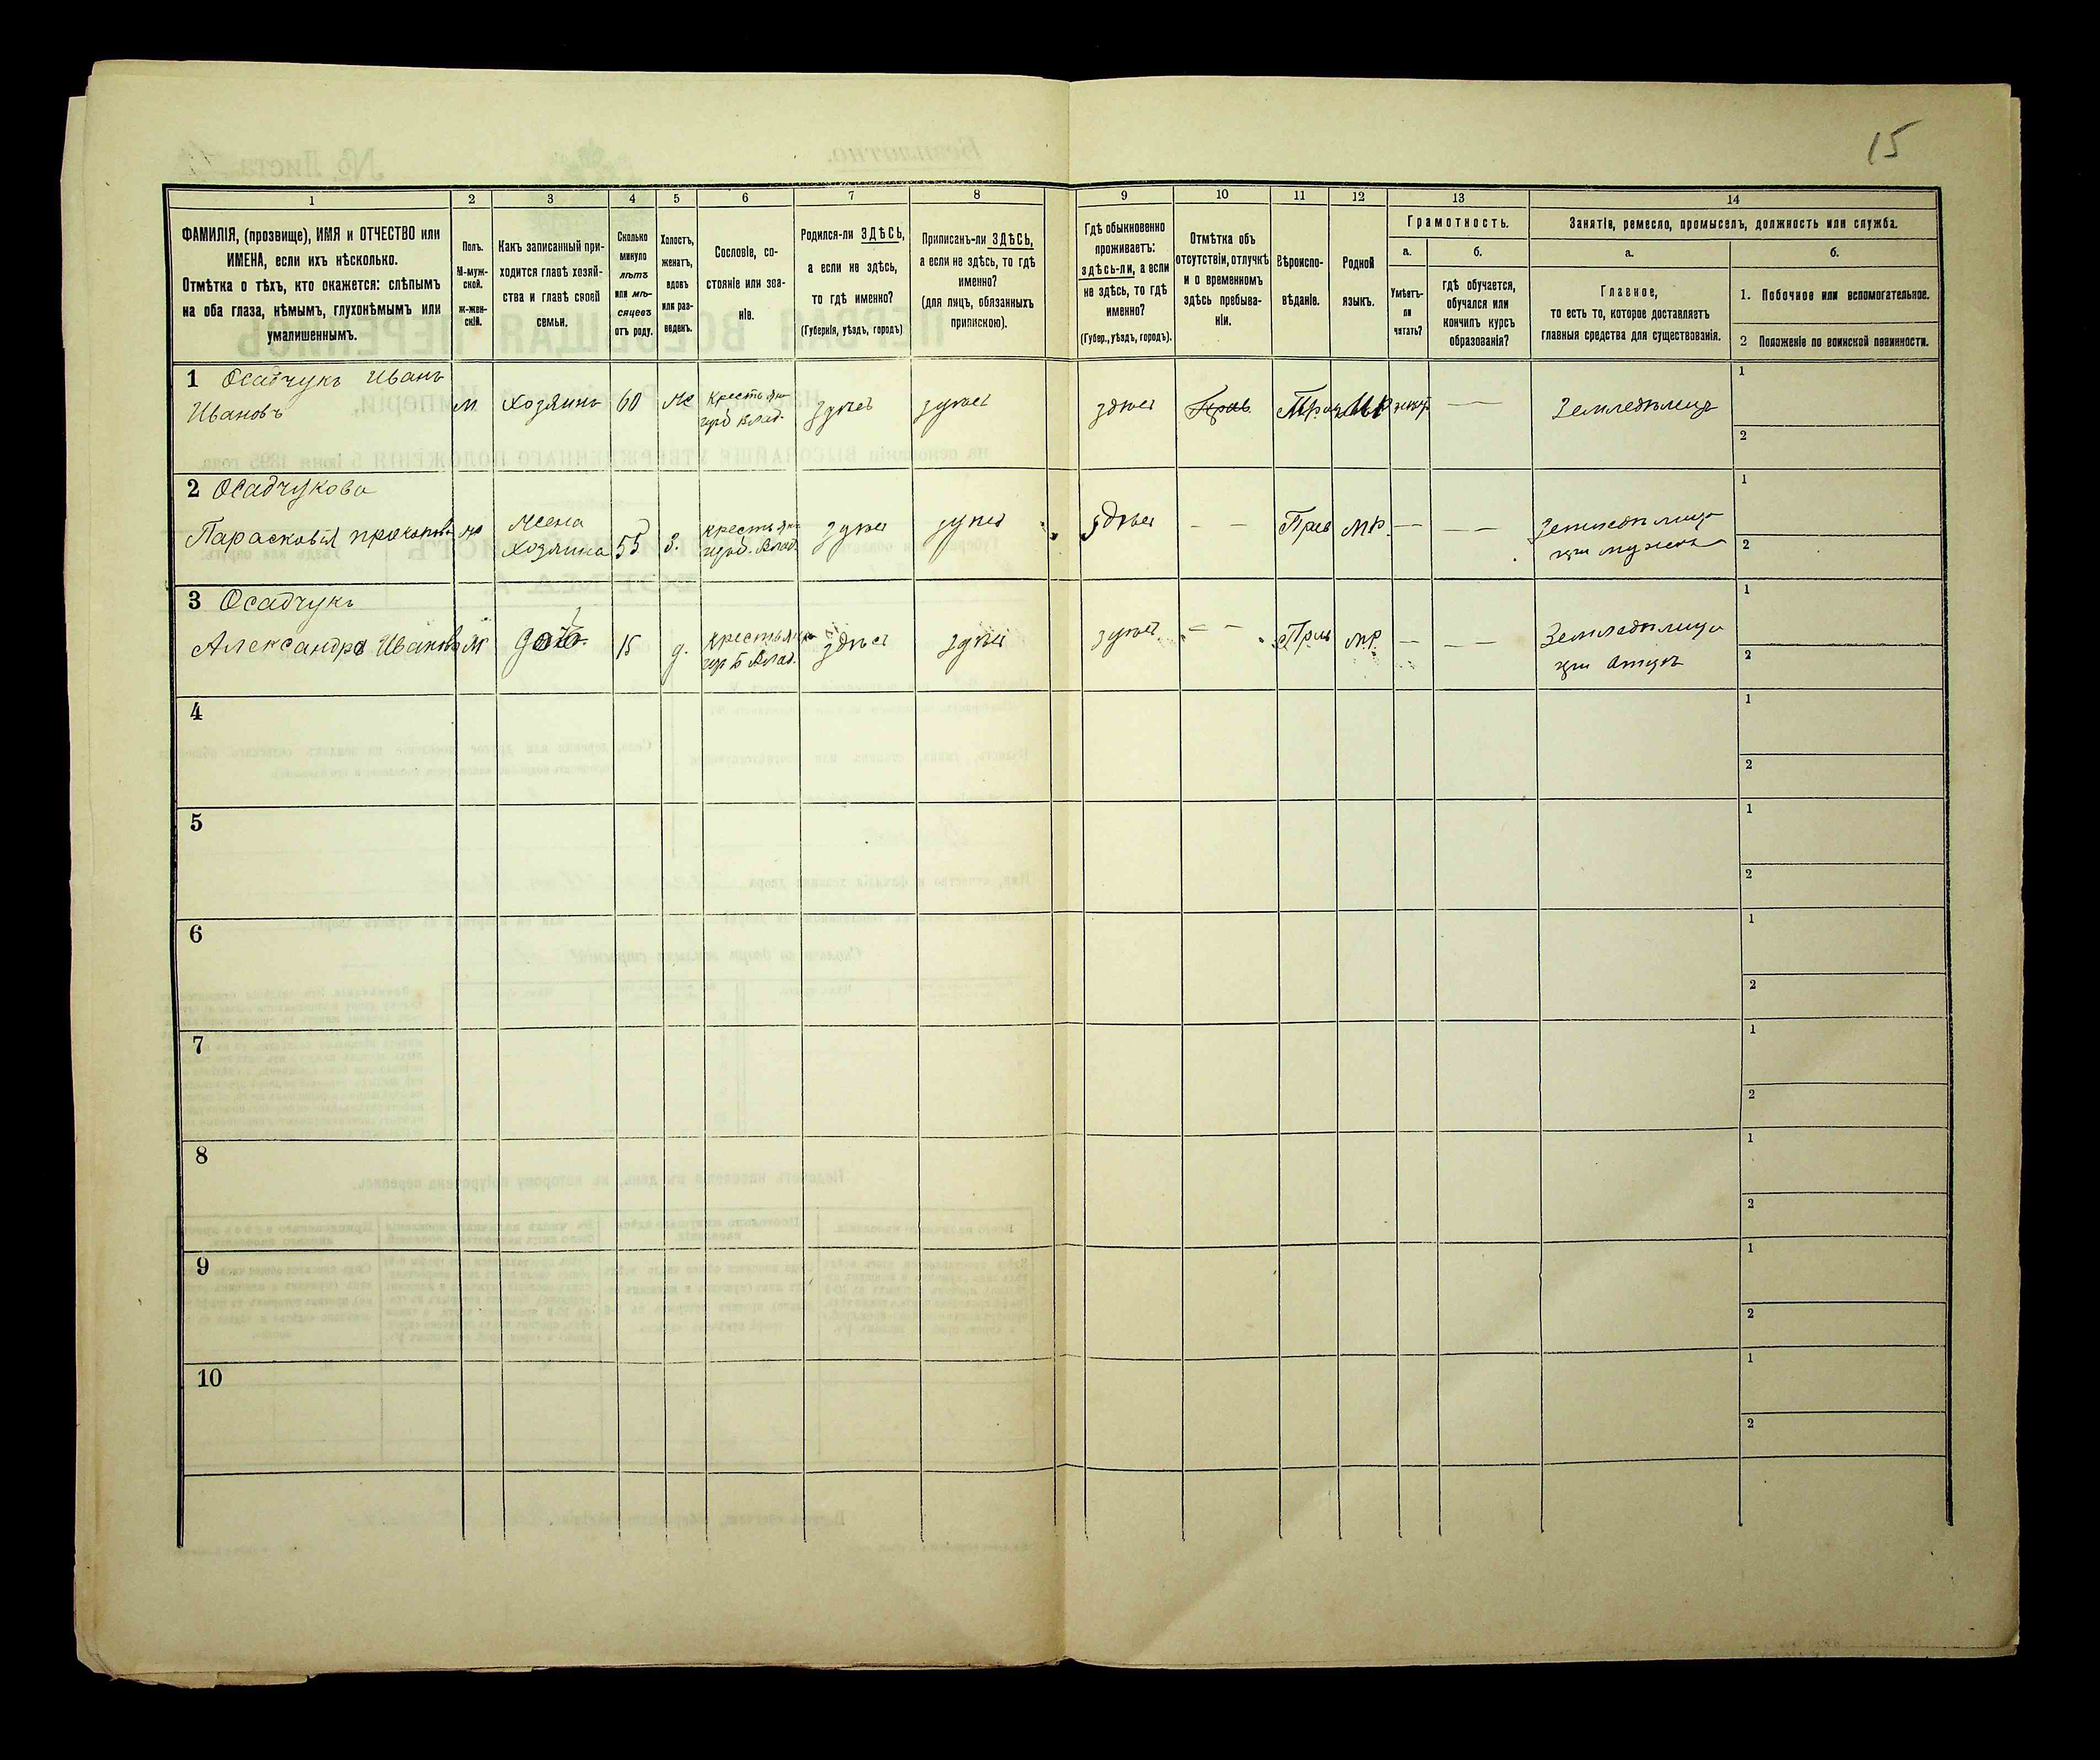 15
1
2
3
4
5
6
7
8
9
10
11
12
13
14
ФАМИЛІЯ, (прозвище), ИМЯ и ОТЧЕСТВО или
ИМЕНА, если ихъ нѣсколько.
Отмѣтка о тѣхъ, кто окажется: слѣпымъ
на оба глаза, нѣмымъ, глухонѣмымъ или
умалишеннымъ.
Полъ.
М-муж-
ской.
ж-жен-
скій.
Какъ записанный при-
ходится главѣ хозяй-
ства и главѣ своей
семьи.
Сколько
минуло
лѣтъ
или мѣ-
сяцевъ
отъ роду.
Холостъ,
женатъ,
вдовъ
или раз-
веденъ.
Сословіе, со-
стояніе или зва-
ніе.
Родился-ли ЗДѢСЬ,
а если не здѣсь,
то гдѣ именно?
(Губернія, уѣздъ, городъ)
Приписанъ-ли ЗДѢСЬ,
а если не здѣсь, то гдѣ
именно?
(для лицъ, обязанныхъ
припискою).
Гдѣ обыкновенно
проживаетъ:
здѣсь-ли, а если
не здѣсь, то гдѣ
именно?
(Губер., уѣздъ, городъ).
Отмѣтка объ
отсутствіи, отлучкѣ
и о временномъ
здѣсь пребыва-
ніи.
Вѣроиспо-
вѣданіе.
Родной
языкъ.
Грамотность.
а.
Умѣетъ-
ли
читать?
б.
гдѣ обучается,
обучался или
кончилъ курсъ
образованія?
Занятіе, ремесло, промыселъ, должность или служба.
а.
Главное,
то есть то, которое доставляетъ
главныя средства для существованія.
б.
1. Побочное или вспомогательное.
2 Положеніе по воинской повинности.
1 Осадчукъ Иванъ
Ивановъ
м
хозяинъ
60
же
крестьян
здѣсь
здѣсь
здѣсь
Прав
М.Р
Земледѣлецъ
1
2
2 Осадчукова
Парасковія прокопова
жена
хозяина
55
З.
крестьян
здѣсь
здѣсь
здѣсь
— —
Прав
М.Р.
—
— —
Земледѣлица
при мужѣ
1
2
3 Осадчукъ
Александра Иванов
м
15
крестьянка
здѣсь
здѣсь
здѣсь
— —
Прав
М.Р.
—
— —
Земледѣлица
при отцѣ
1
2
4
1
2
5
1
2
6
1
2
7
1
2
8
1
2
9
1
2
10
1
2